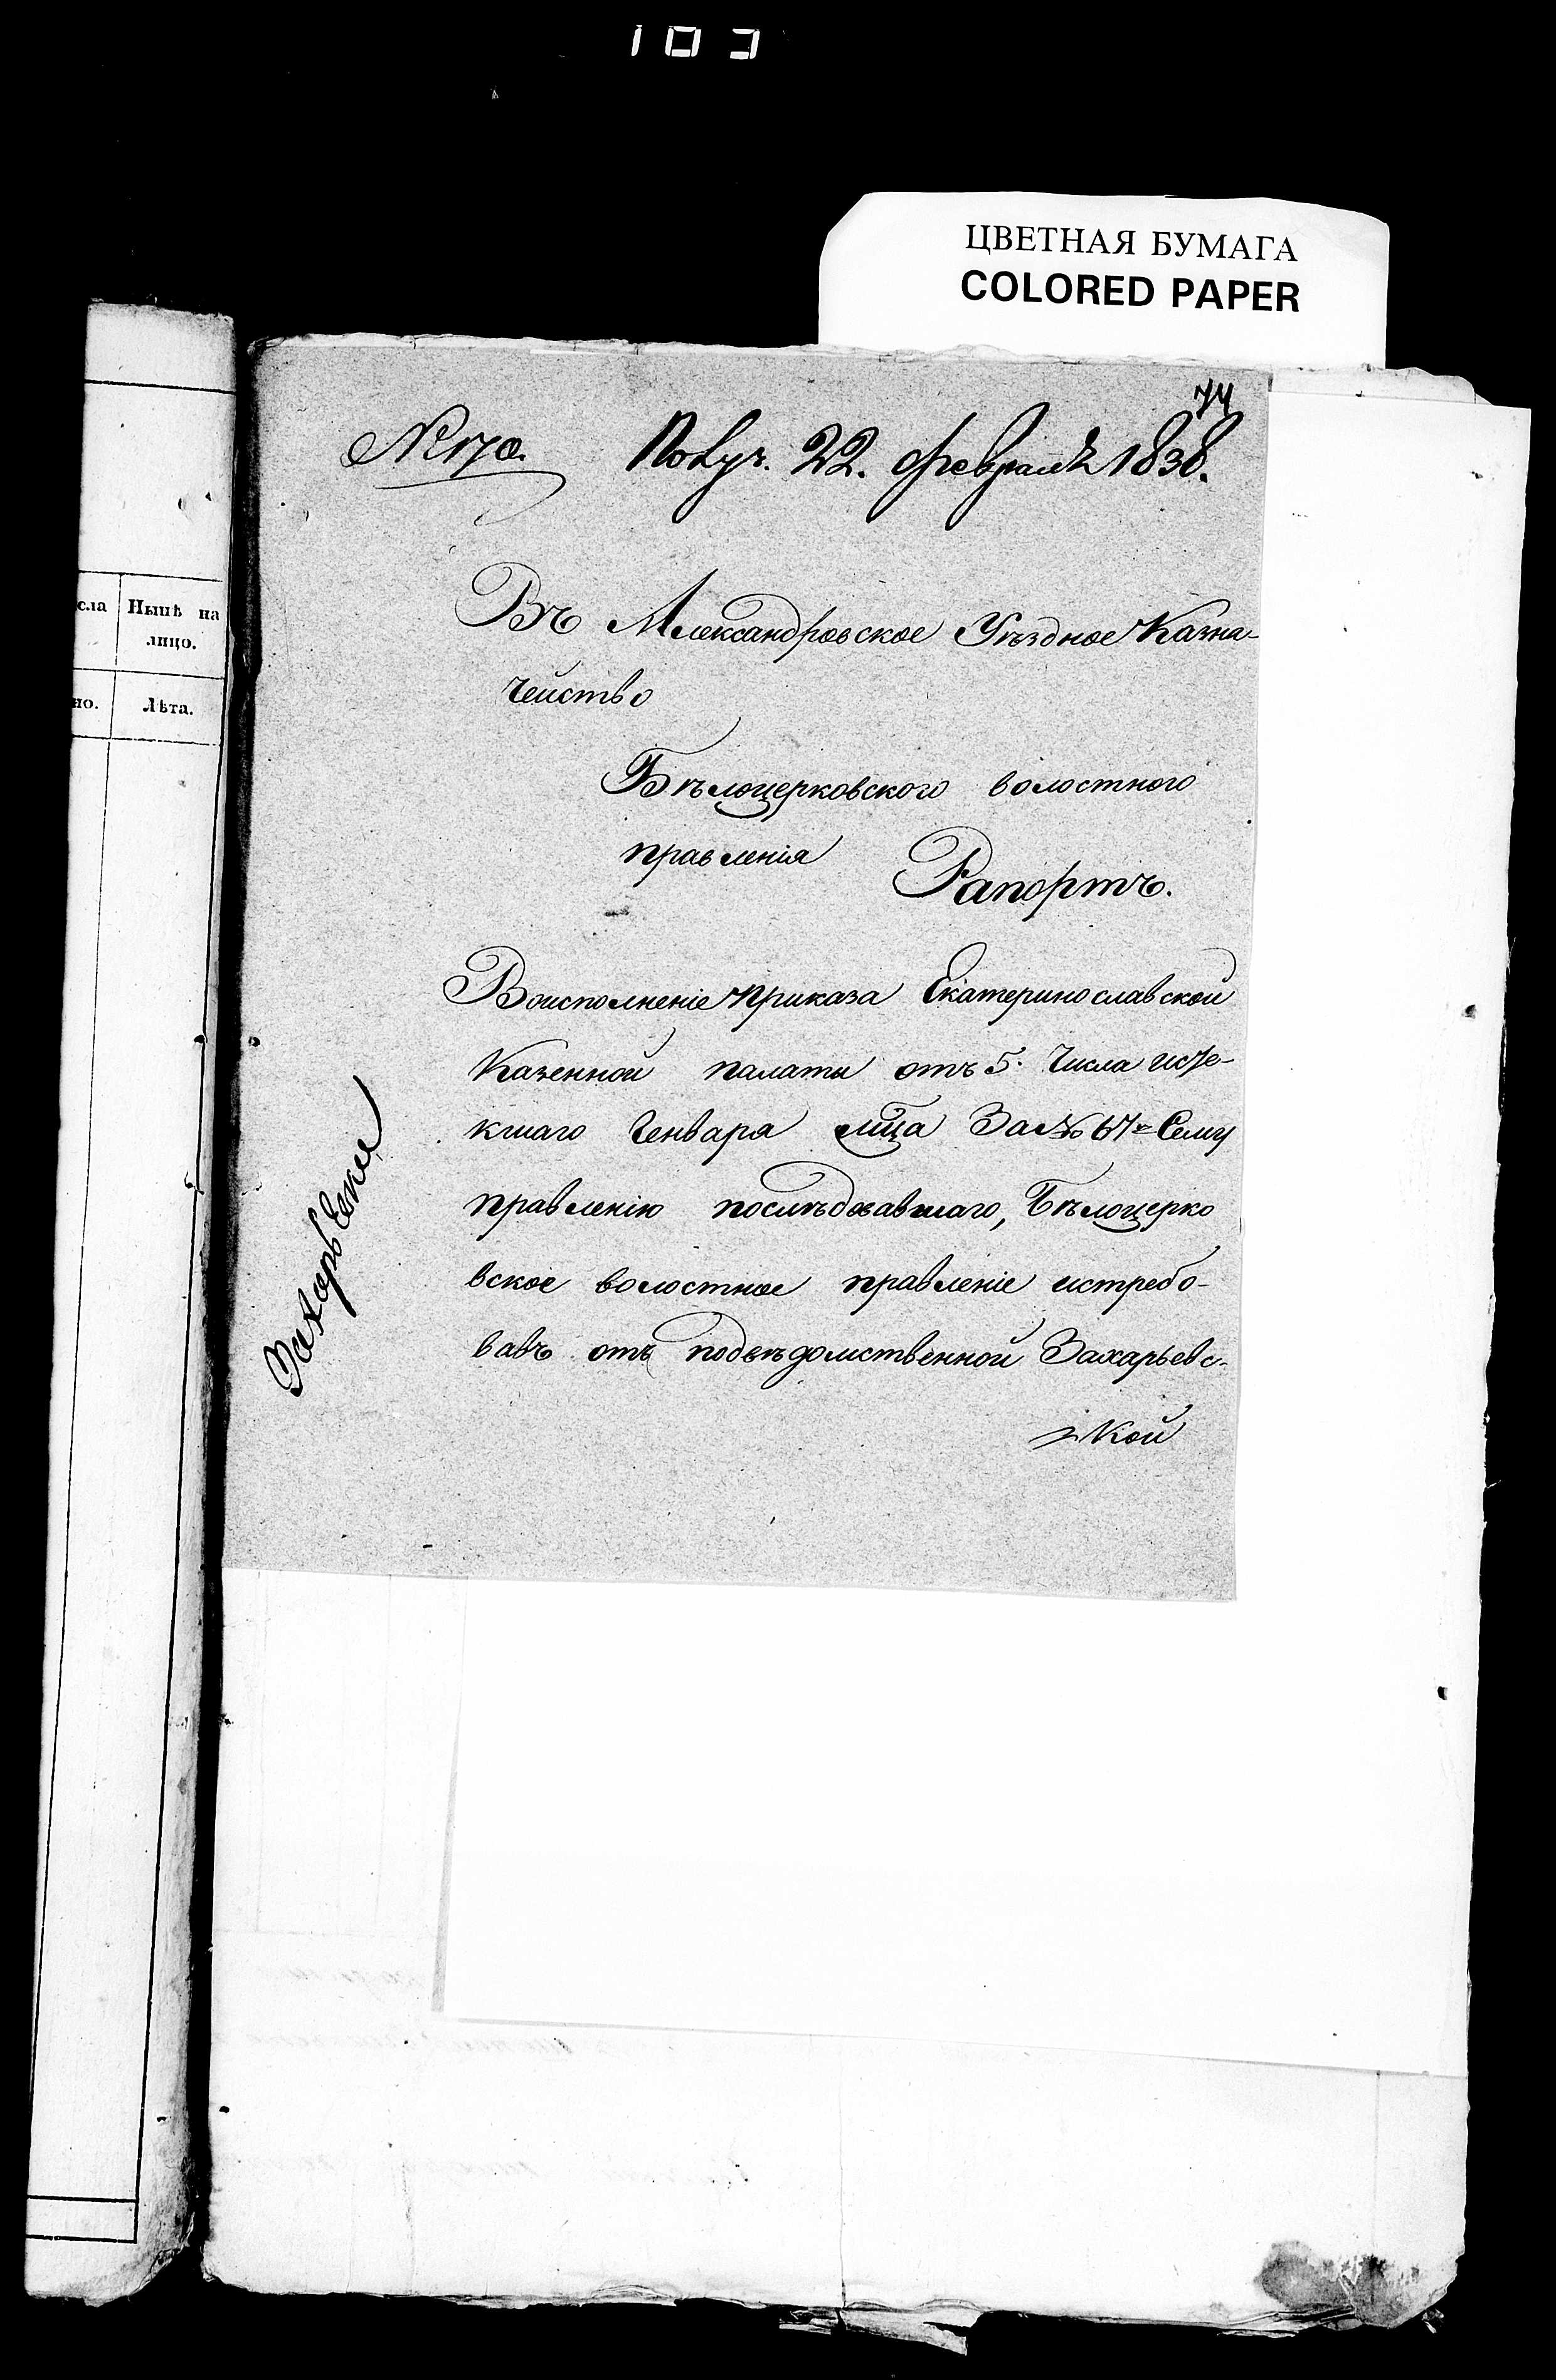 103
ЦВЕТНАЯ БУМАГА
COLORED PAPER
74
№ 170. Получ. 22. февраля 1838.
Въ Александровское Уѣздное Казна-
чейство
Бѣлоцерковского волостного
правленія
Рапортъ.
Воисполненіе приказа Екатеринославской
Казенной палаты отъ 5. Числа исте-
кшаго Генваря мца За № 67м Сему
правленію послѣдовавшаго, Бѣлоцерко
вское волостное правленіе истребо-
вавъ отъ подвѣдомственной Захарьевс-
кой
Захарьевки
сла
Нынѣ на
лицо.
но.
Лѣта.